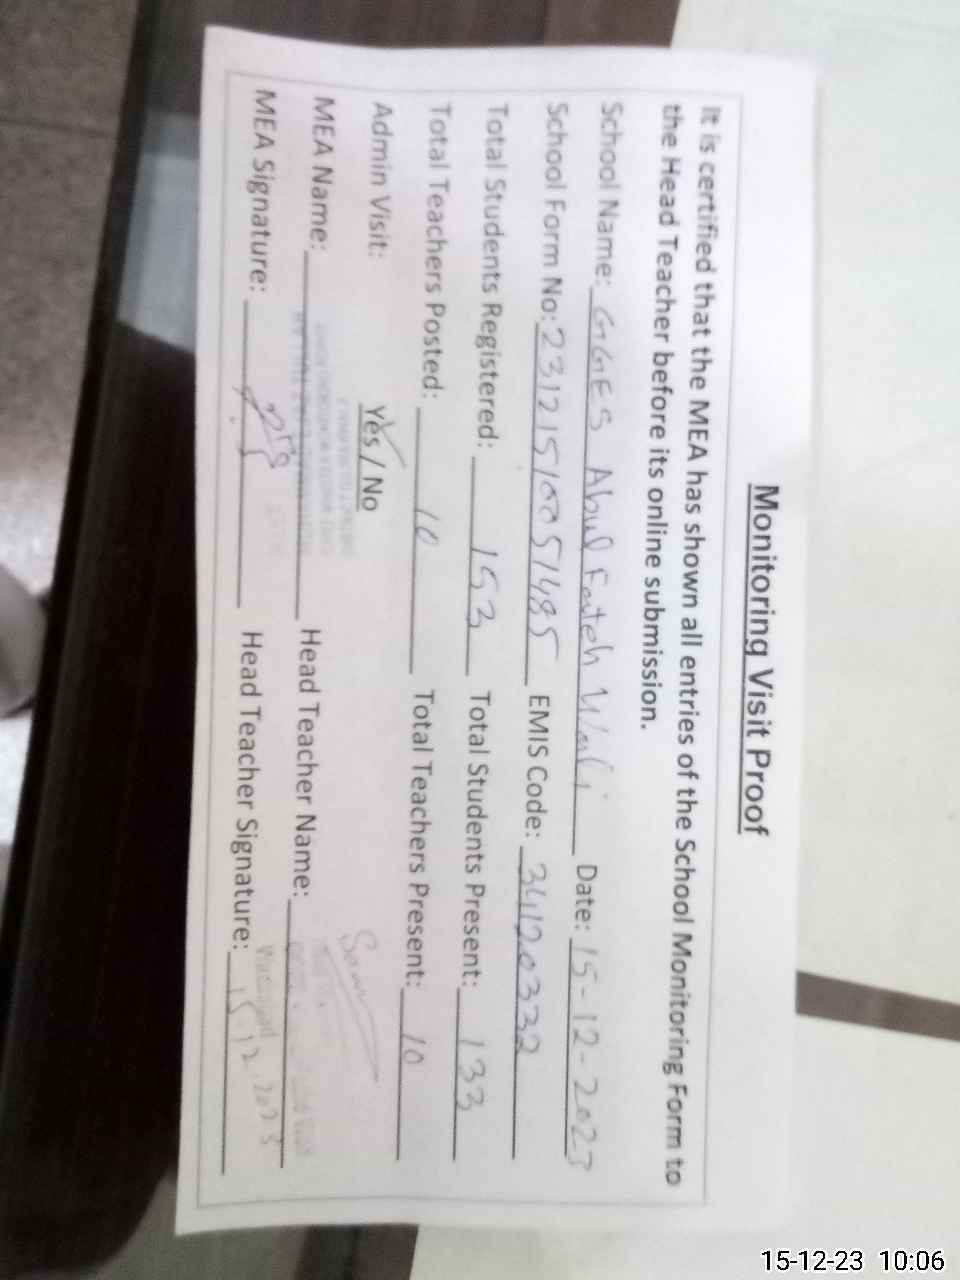 Monitoring Visit Proof
It is certified that the MEA has shown all entries of the School Monitoring Form to
the Head Teacher before its online submission.
School Name: GGES Abul Fateh Wali Date: 15-12-2023
School Form No: 23121510051485 EMIS Code: 34120332
Total Students Registered: 153 Total Students Present: 133
Total Teachers Posted: 10 Total Teachers Present: 10
Admin Visit: Yes / No
MEA Name: Head Teacher Name:
MEA Signature: Head Teacher Signature: 15.12.2023
15-12-23 10:06